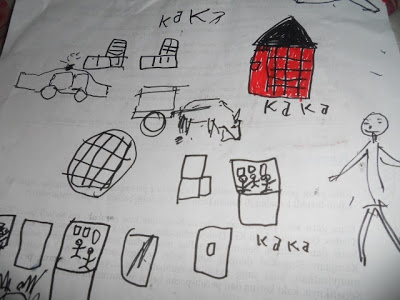 KaKa
KaKa
KaKa